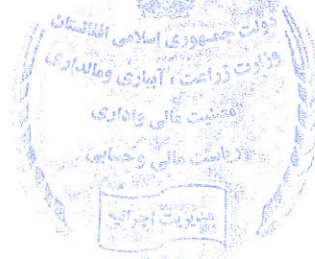 دولت جمهوری اسلامی افغانستان
وزارت زراعت ، آبیاری ومالداری
معینیت مالی واداری
ریاست مالی وحسابی
مدیریت اجرائیه